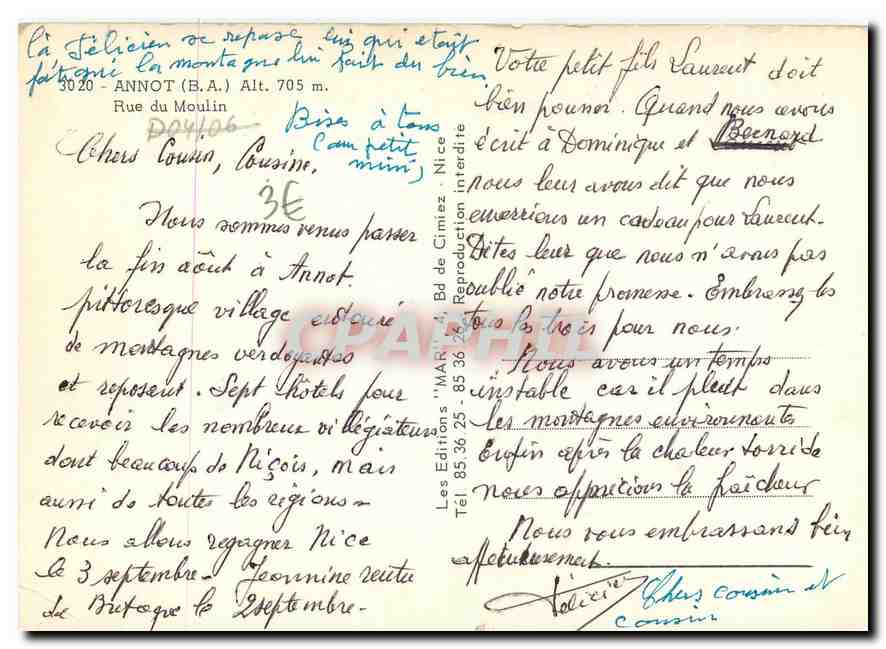 là Félicien se repose lui qui etait
fatigué la montagne lui fait du bien
3020 - ANNOT (B.A.) Alt. 705 m.
Rue du Moulin
D04/06
Bises à tous
mini,
3€
Chers Cousin, Cousine,
Nous sommes venus passer
la fin août à Annot.
pittoresque village entouré
de montagnes verdoyantes
et reposant. Sept hôtels pour
recevoir les nombreux villégiateurs
dont beaucoup de Niçois, mais
aussi de toutes les régions -
Nous allons regagner Nice
le 3 septembre - Jeannine rentre
de Bretagne le 2 septembre -
Les Editions "MAR" 4, Bd de Cimiez - Nice
Tél. 85.36.25 - 85 36 26 Reproduction interdite
CPAPHIL
Votre petit fils Laurent doit
bien pousser. Quand nous avons
écrit à Dominique et Bernard
nous leur avous dit que nous
enverrions un cadeau pour Laurent.
Dites leur que nous n'avons pas
oublié notre promesse. Embrassez les
tous les trois pour nous.
Nous avons un temps
instable car il pleut dans
les montagnes environnantes
Enfin après la chaleur torride
nous apprécions la fraîcheur
Nous vous embrassons bien
affectueusement.
Félicien
Chers cousin et
cousin